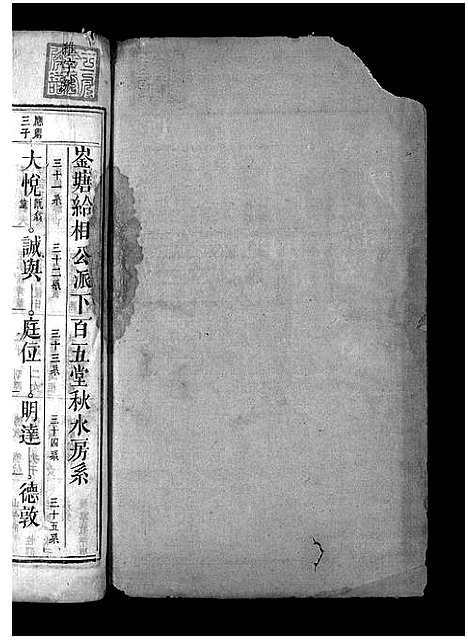 崟塘給相公派下百五堂秋水房系
三十一系 三十二系 三十三系 三十四系 三十五系
應肅三子
大悅 誠與 庭位 明達 德敦